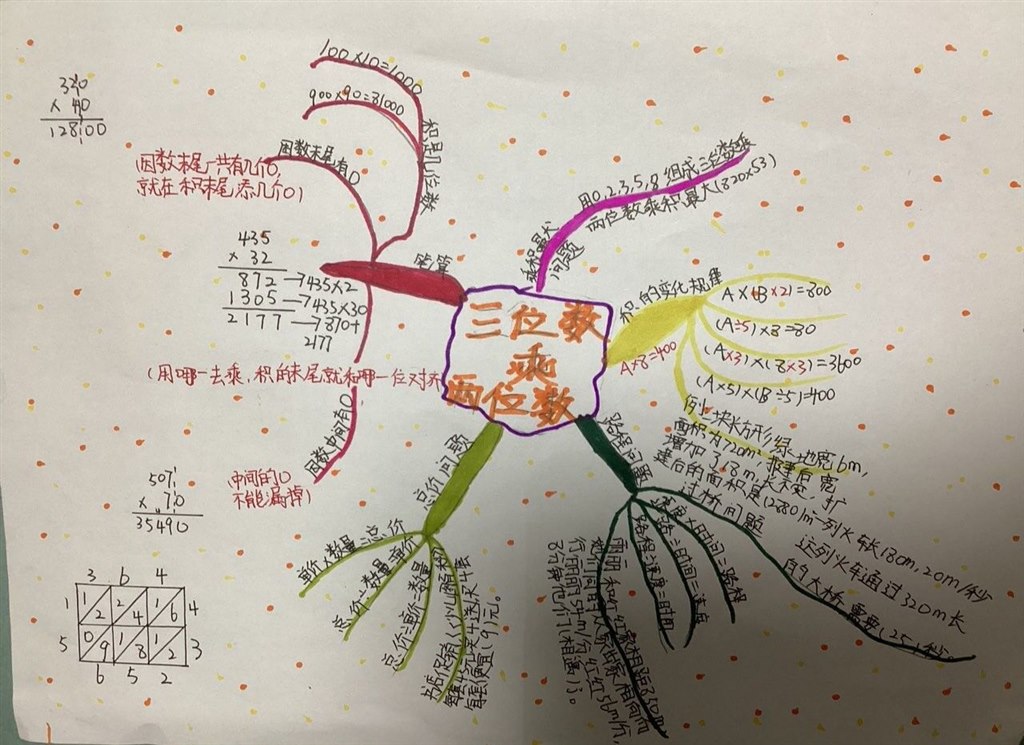 三位数
乘
两位数
笔算
积是几位数
100×10=1000
900×90=81000
因数末尾有0
因数末尾一共有几个0,
就在积末尾添几个0)
320
× 40
12800
435
× 32
872 →435×2
1305 →435×30
2177 →870+
2177
(用哪一去乘,积的末尾就和哪一位对齐
因数中间有0
中间的0
不能漏掉)
507
× 70
35490
3 6 4
1 1 2 2 4 1 6 4
5 0 9 1 8 1 2 3
6 5 2
乘积最大
问题
用0,2,3,5,8 组成三位数乘
两位数乘积最大(820×53)
积的变化规律
A×B=400
A×(B×2)=800
(A÷5)×B=80
(A×3)×(B×3)=3600
(A×5)×(B÷5)=400
例:一块长方形绿地宽6m,
面积为720m²,扩建后宽
增加了18m,长不变,扩
建后的面积是(2880)m²
路程问题
速度×时间=路程
路程÷时间=速度
路程÷速度=时间
过桥问题
一列火车长180m,20m/秒
这列火车通过320m长
的大桥,需要(25)秒。
总价问题
单价×数量=总价
总价÷数量=单价
总价÷单价=数量